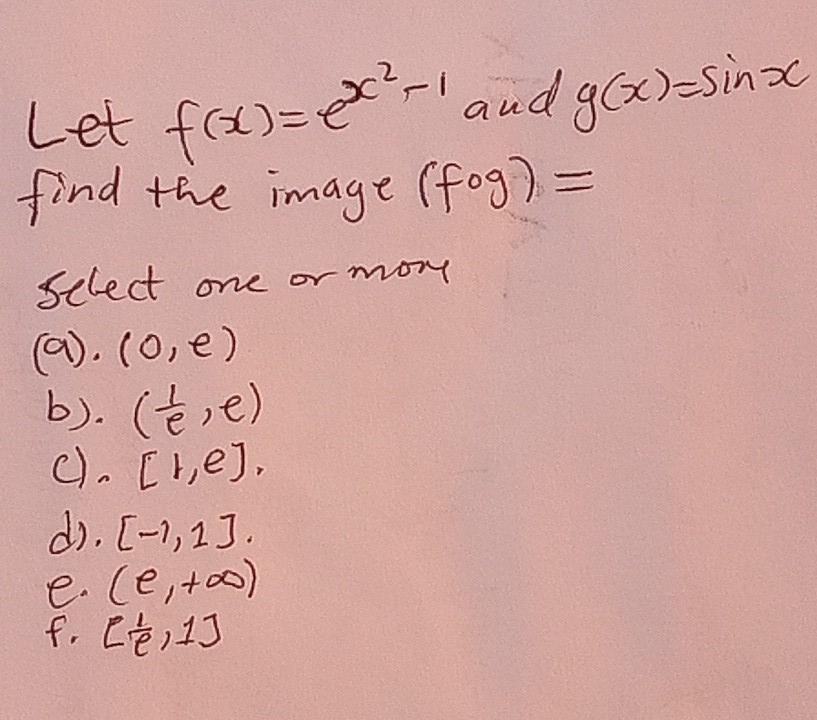 Let f(x)=e^{x²-1} and g(x)=sinx
find the image (fog)=
Select one or more
(a). (0,e)
b). (1/e,e)
c). [1,e].
d). [-1,1].
e. (e,+∞)
f. [1/e,1]